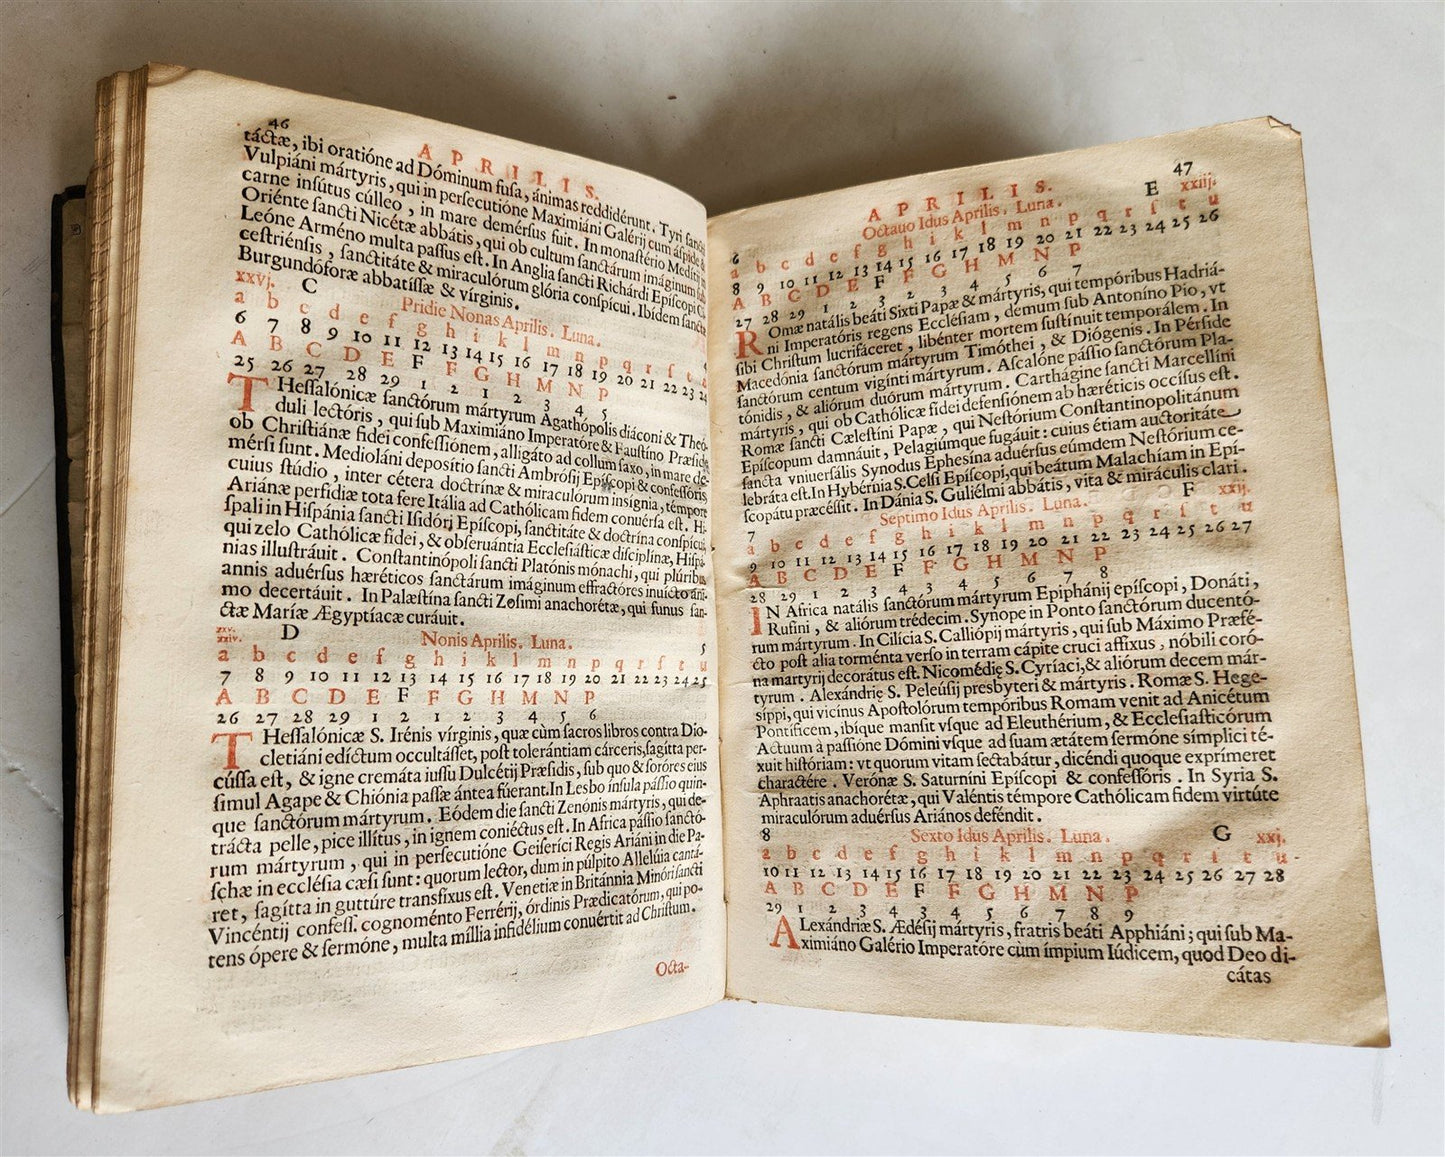 46
APRILIS.
táctæ, ibi oratióne ad Dóminum fusa, ánimas reddidérunt. Tyri sancti
Vulpiáni mártyris, qui in persecutióne Maximiáni Galérij cum áspide &
carne insútus cúlleo, in mare demérsus fuit. In monastério Medítij in
Oriénte sancti Nicétæ abbátis, qui ob cultum sanctárum imáginum sub
Leóne Arméno multa passus est. In Anglia sancti Richárdi Epíscopi Ci-
cestriénsis, sanctitáte & miraculórum glória conspícui. Ibídem sanctæ
Burgundófóræ abbatíssæ & vírginis.
xxvj. C Pridie Nonas Aprilis. Luna. 4
a b c d e f g h i k l m n p q r s t u
6 7 8 9 10 11 12 13 14 15 16 17 18 19 20 21 22 23 24
A B C D E F F G H M N P
25 26 27 28 29 1 1 2 3 4 5
THessalónicæ sanctórum mártyrum Agathópolis diáconi & Theó-
duli lectóris, qui sub Maximiáno Imperatóre & Faustíno Præside,
ob Christiánæ fidei confessiónem, alligáto ad collum saxo, in mare de-
mérsi sunt. Medioláni deposítio sancti Ambrósij Epíscopi & confessóris,
cuius stúdio, inter cétera doctrínæ & miraculórum insígnia, témpore
Ariánæ perfídiæ tota fere Itália ad Cathólicam fidem convérsa est. Hí-
spali in Hispánia sancti Isidóri Epíscopi, sanctitáte & doctrína conspícui,
qui zelo Cathólicæ fidei, & obseruántia Ecclesiásticæ disciplínæ, Hispá-
nias illustráuit. Constantinópoli sancti Platónis mónachi, qui plúribus
annis aduérsus hæréticos sanctárum imáginum effractóres inuícto áni-
mo decertáuit. In Palæstína sancti Zosimi anachorétæ, qui funus san-
ctæ Maríæ Ægyptíacæ curáuit.
xxv.
xxiv. D Nonis Aprilis. Luna. 5
a b c d e f g h i k l m n p q r s t u
7 8 9 10 11 12 13 14 15 16 17 18 19 20 21 22 23 24 25
A B C D E F F G H M N P
26 27 28 29 1 2 1 2 3 4 5 6
THessalónicæ S. Irénis vírginis, quæ cùm sacros libros contra Dio-
cletiáni edíctum occultásset, post tolerántiam cárceris, sagítta per-
cússa est, & igne cremáta iussu Dulcétij Præsidis, sub quo & soróres eius
simul Agape & Chiónia passæ ántea fúerant. In Lesbo ínsula pássio quin-
que sanctórum mártyrum. Eódem die sancti Zenónis mártyris, qui de-
trácta pelle, pice illítus, in ignem coniéctus est. In Africa pássio sanctó-
rum mártyrum, qui in persecutióne Geiseríci Regis Ariáni in die Pa-
schæ in ecclésia cæsi sunt: quorum lector, dum in púlpito Allelúia cantá-
ret, sagítta in guttúre transfixus est. Venetiæ in Británnia Minóri sancti
Vincéntij confess. cognoménto Ferrérij, órdinis Prædicatórum, qui po-
tens ópere & sermóne, multa míllia infidélium convértit ad Christum.
Octa-
47
APRILIS.
6 Octauo Idus Aprilis. Luna. E xxiij.
a b c d e f g h i k l m n p q r s t u
8 9 10 11 12 13 14 15 16 17 18 19 20 21 22 23 24 25 26
A B C D E F F G H M N P
27 28 29 1 2 3 2 3 4 5 6 7
ROmæ natális beáti Sixti Papæ & mártyris, qui tempóribus Hadriá-
ni Imperatóris regens Ecclésiam, demum sub Antoníno Pio, vt
sibi Christum lucrifáceret, libénter mortem sustínuit temporálem. In
Macedónia sanctórum mártyrum Timóthei, & Diógenis. In Pérside
sanctórum centum vigínti mártyrum. Ascalóne pássio sanctórum Pla-
tónidis, & aliórum duórum mártyrum. Cartháginę sancti Marcellíni
mártyris, qui ob Cathólicæ fidei defensiónem ab hæréticis occísus est.
Romæ sancti Cælestíni Papæ, qui Nestórium Constantinopolitánum
Epíscopum damnáuit, Pelagiúmque fugáuit: cuius étiam auctoritáte
sancta vniuersális Synodus Ephesína aduérsus eúmdem Nestórium ce-
lebráta est. In Hybérnia S. Celsi Epíscopi, qui beátum Malachíam in Epi-
scopátu præcéssit. In Dánia S. Guliélmi abbátis, vita & miráculis clari.
7 Septimo Idus Aprilis. Luna. F xxij.
a b c d e f g h i k l m n p q r s t u
9 10 11 12 13 14 15 16 17 18 19 20 21 22 23 24 25 26 27
A B C D E F F G H M N P
28 29 1 2 3 4 3 4 5 6 7 8
IN Africa natális sanctórum mártyrum Epiphánij epíscopi, Donáti,
Rufíni, & aliórum trédecim. Synope in Ponto sanctórum ducentó-
rum mártyrum. In Cilícia S. Calliópij mártyris, qui sub Máximo Præfé-
cto post alia torménta verso in terram cápite cruci affixus, nóbili coró-
na martyrij decorátus est. Nicomédię S. Cyríaci, & aliórum decem már-
tyrum. Alexándrię S. Peleúsij presbyteri & mártyris. Romæ S. Hege-
síppi, qui vicínus Apostolórum tempóribus Romam venit ad Anicétum
Pontíficem, ibíque mansit vsque ad Eleuthérium, & Ecclesiasticórum
Actuum à passióne Dómini vsque ad suam ætátem sermóne símplici té-
xuit históriam: vt quorum vitam sectabátur, dicéndi quoque exprímeret
charactére. Verónæ S. Saturníni Epíscopi & confessóris. In Syria S.
Aphraatis anachorétæ, qui Valéntis témpore Cathólicam fidem virtúte
miraculórum aduérsus Ariános deféndit.
8 Sexto Idus Aprilis. Luna. G xxj.
a b c d e f g h i k l m n p q r s t u
10 11 12 13 14 15 16 17 18 19 20 21 22 23 24 25 26 27 28
A B C D E F F G H M N P
29 1 2 3 4 3 4 5 6 7 8 9
ALexándriæ S. Ædésij mártyris, fratris beáti Apphiáni; qui sub Ma-
ximiáno Galério Imperatóre cùm ímpium Iúdicem, quod Deo di-
cátas